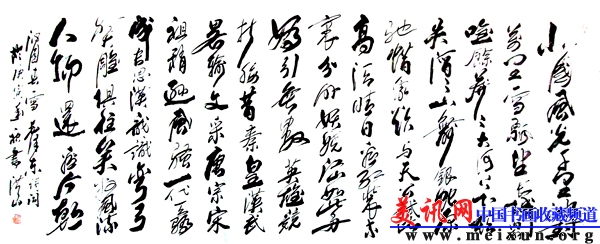 北国風光千里冰封
万里雪飘望长城内外
唯餘莽莽大河上下顿
失滔滔山舞银蛇原
驰蜡象欲与天公试比
高须晴日看红装素
裹分外妖娆江山如此多
娇引无数英雄竞
折腰昔秦皇汉武
略输文采唐宗宋
祖稍逊风骚一代天骄
成吉思汉只识弯弓
射大雕俱往矣数风流
人物还看今朝
沁园春雪毛泽东词
美讯网 中国书画收藏频道
www.meixun.org